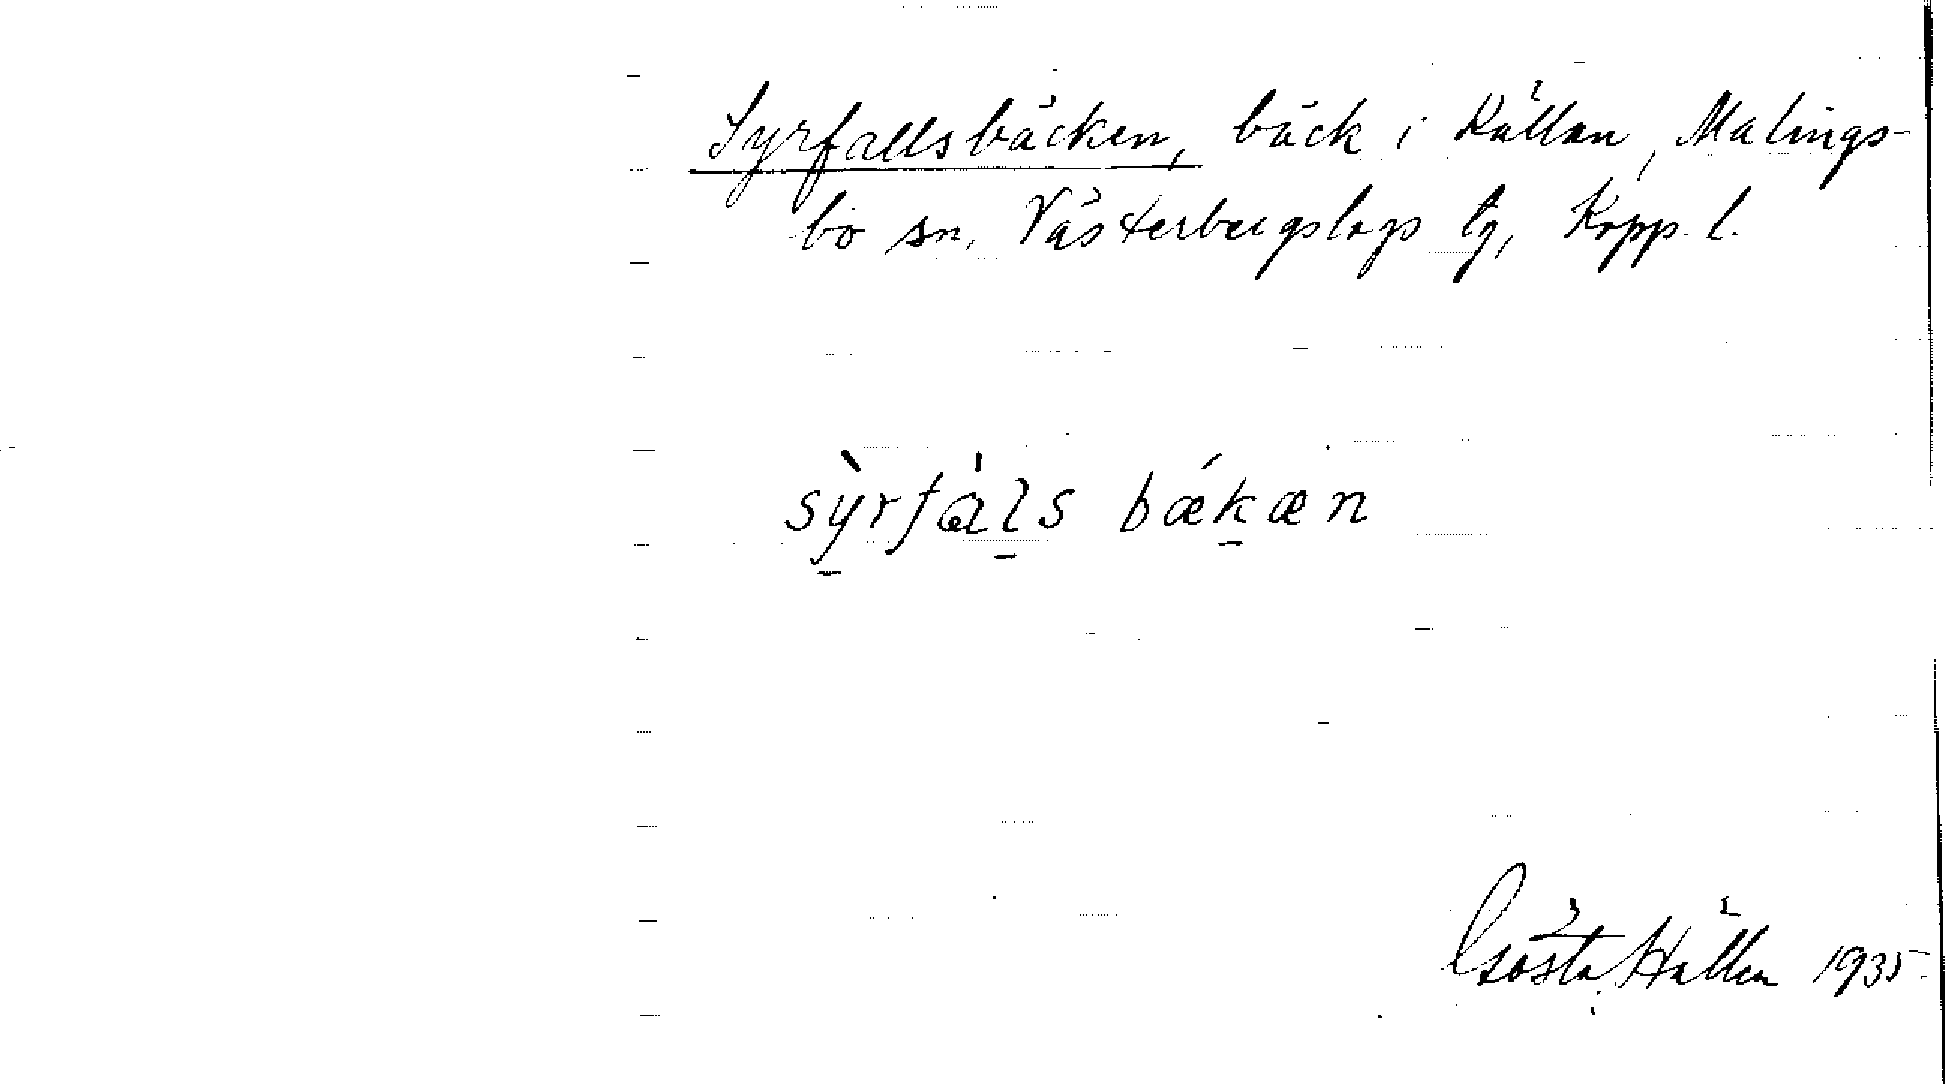 Syrfallsbäcken, bäck i Källan, Malings-
bo sn, Västerbergslags tg, Kopp. l.
sỳrfàls bǽkæn
Gösta Hällen 1935